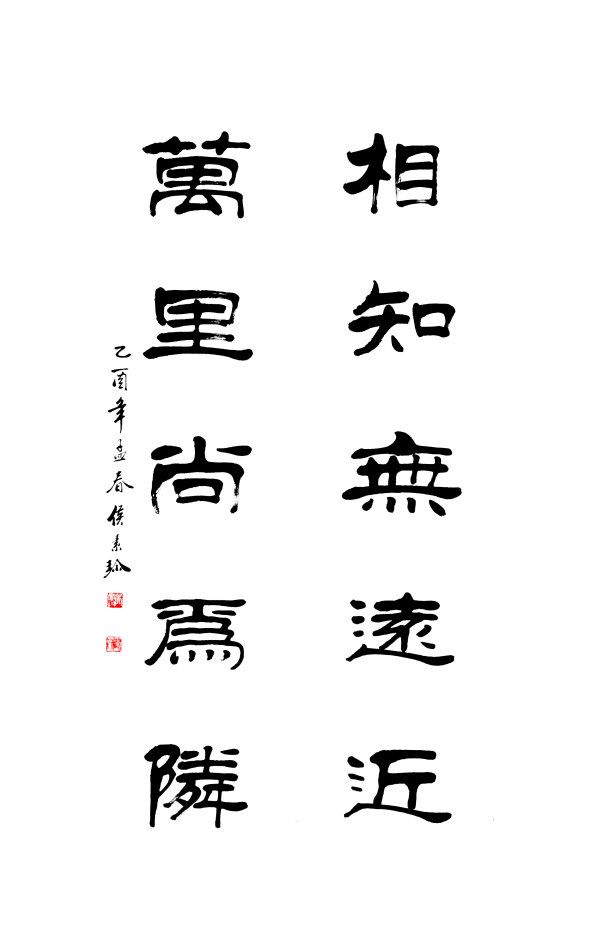 相知無遠近
萬里尚爲隣
乙酉年孟春侯素珍